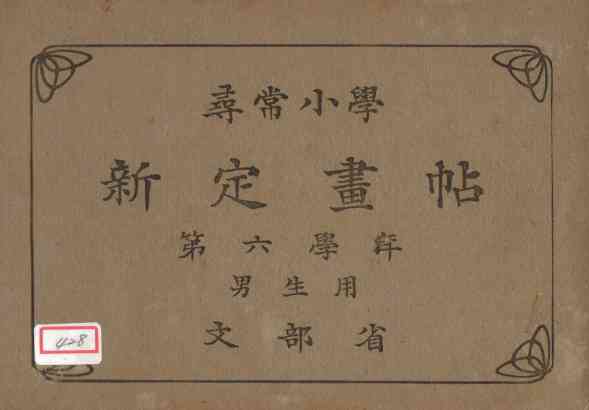 尋常小學
新定畫帖
第六學年
男生用
文部省
428